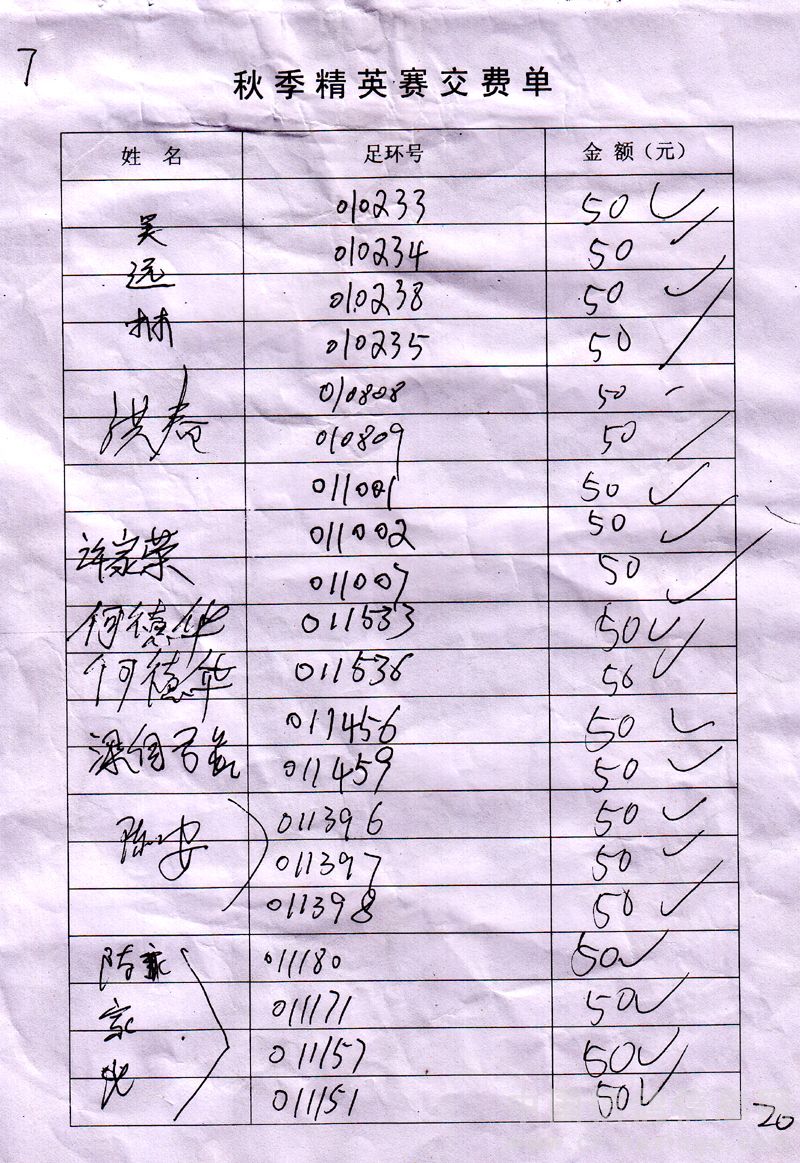 7
秋季精英赛交费单
姓 名 足环号 金 额（元）
吴远林 010233 50
010234 50
010238 50
010235 50
洪春 010808 50
010809 50
011001 50
许家荣 011002 50
011007 50
何德华 011533 50
何德华 011536 50
梁伯 011456 50
011459 50
陈 安 011396 50
011397 50
011398 50
陈家 011180 50
011171 50
011157 50
011151 50
20